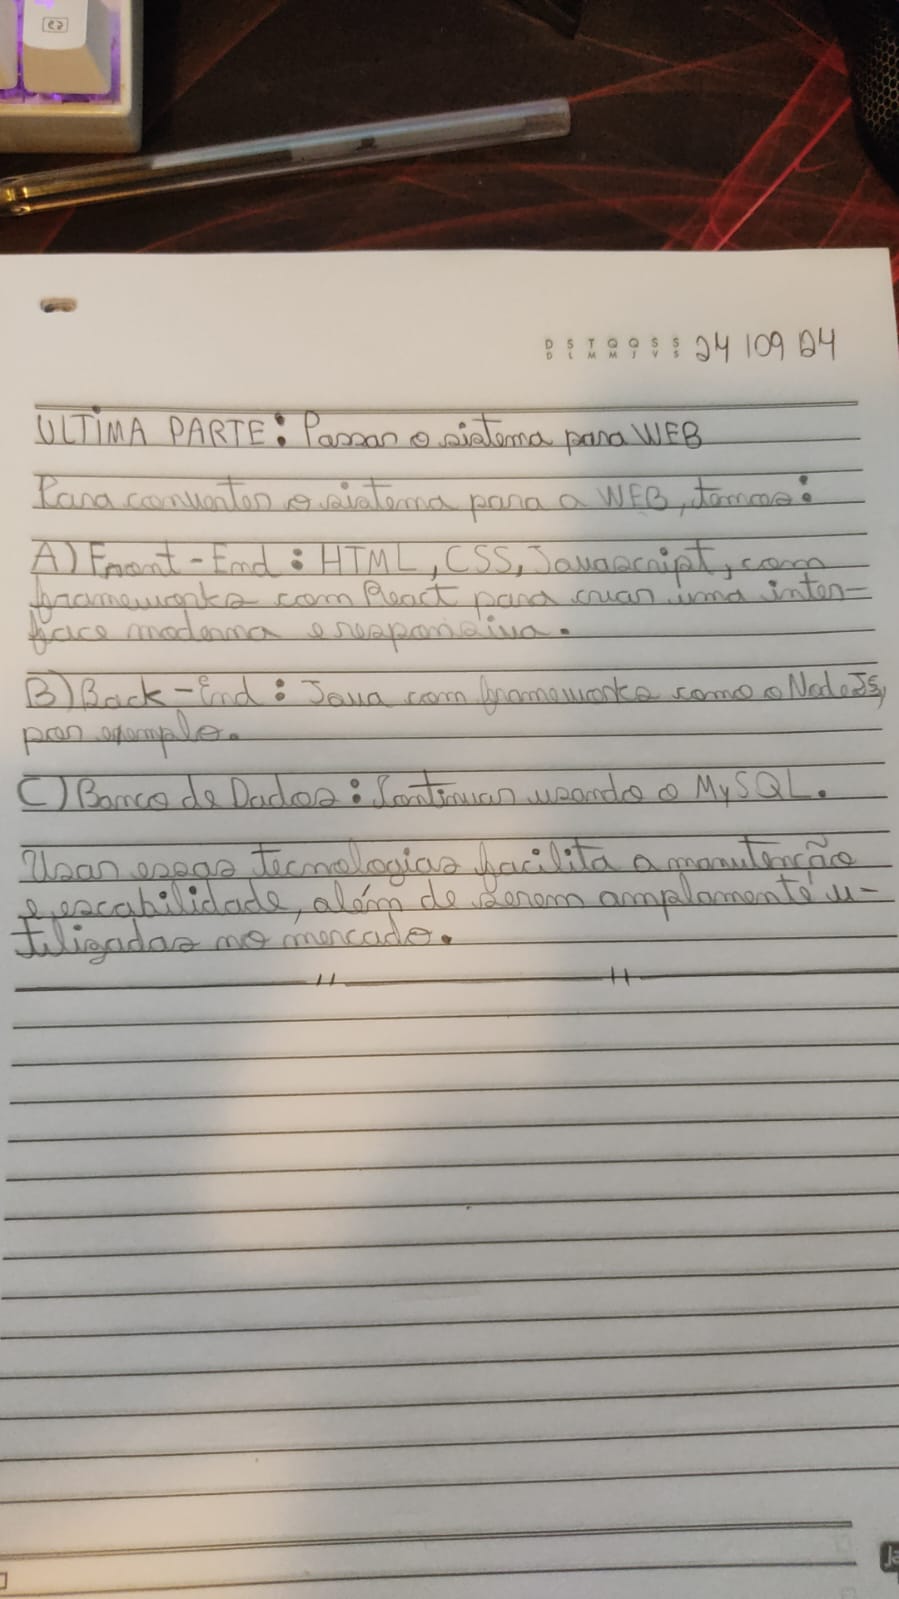 D S T Q Q S S
D L M M J V S
24 109 24
ULTIMA PARTE: Passar o sistema para WEB
Para converter o sistema para a WEB, temos:
A) Front-End: HTML, CSS, Javascript, com
frameworks com React para criar uma inter-
face moderna e responsiva.
B) Back-End: Java com frameworks como o NodeJS,
por exemplo.
C) Banco de Dados: Continuar usando o MySQL.
Usar essas tecnologias facilita a manutenção
e escabilidade, além de serem amplamente u-
tilizadas no mercado.